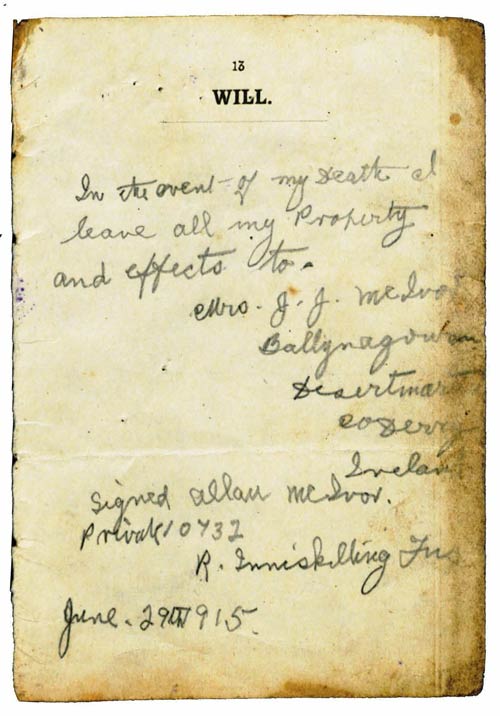 13
WILL.
In the event of my Death I
leave all my Property
and effects to.
Mrs. J. J. McIvor
Ballynagowan
Desertmart
Co Derry
Ireland
Signed Allan McIvor.
Private 10732
R. Inniskilling Fus
June. 29th 1915.